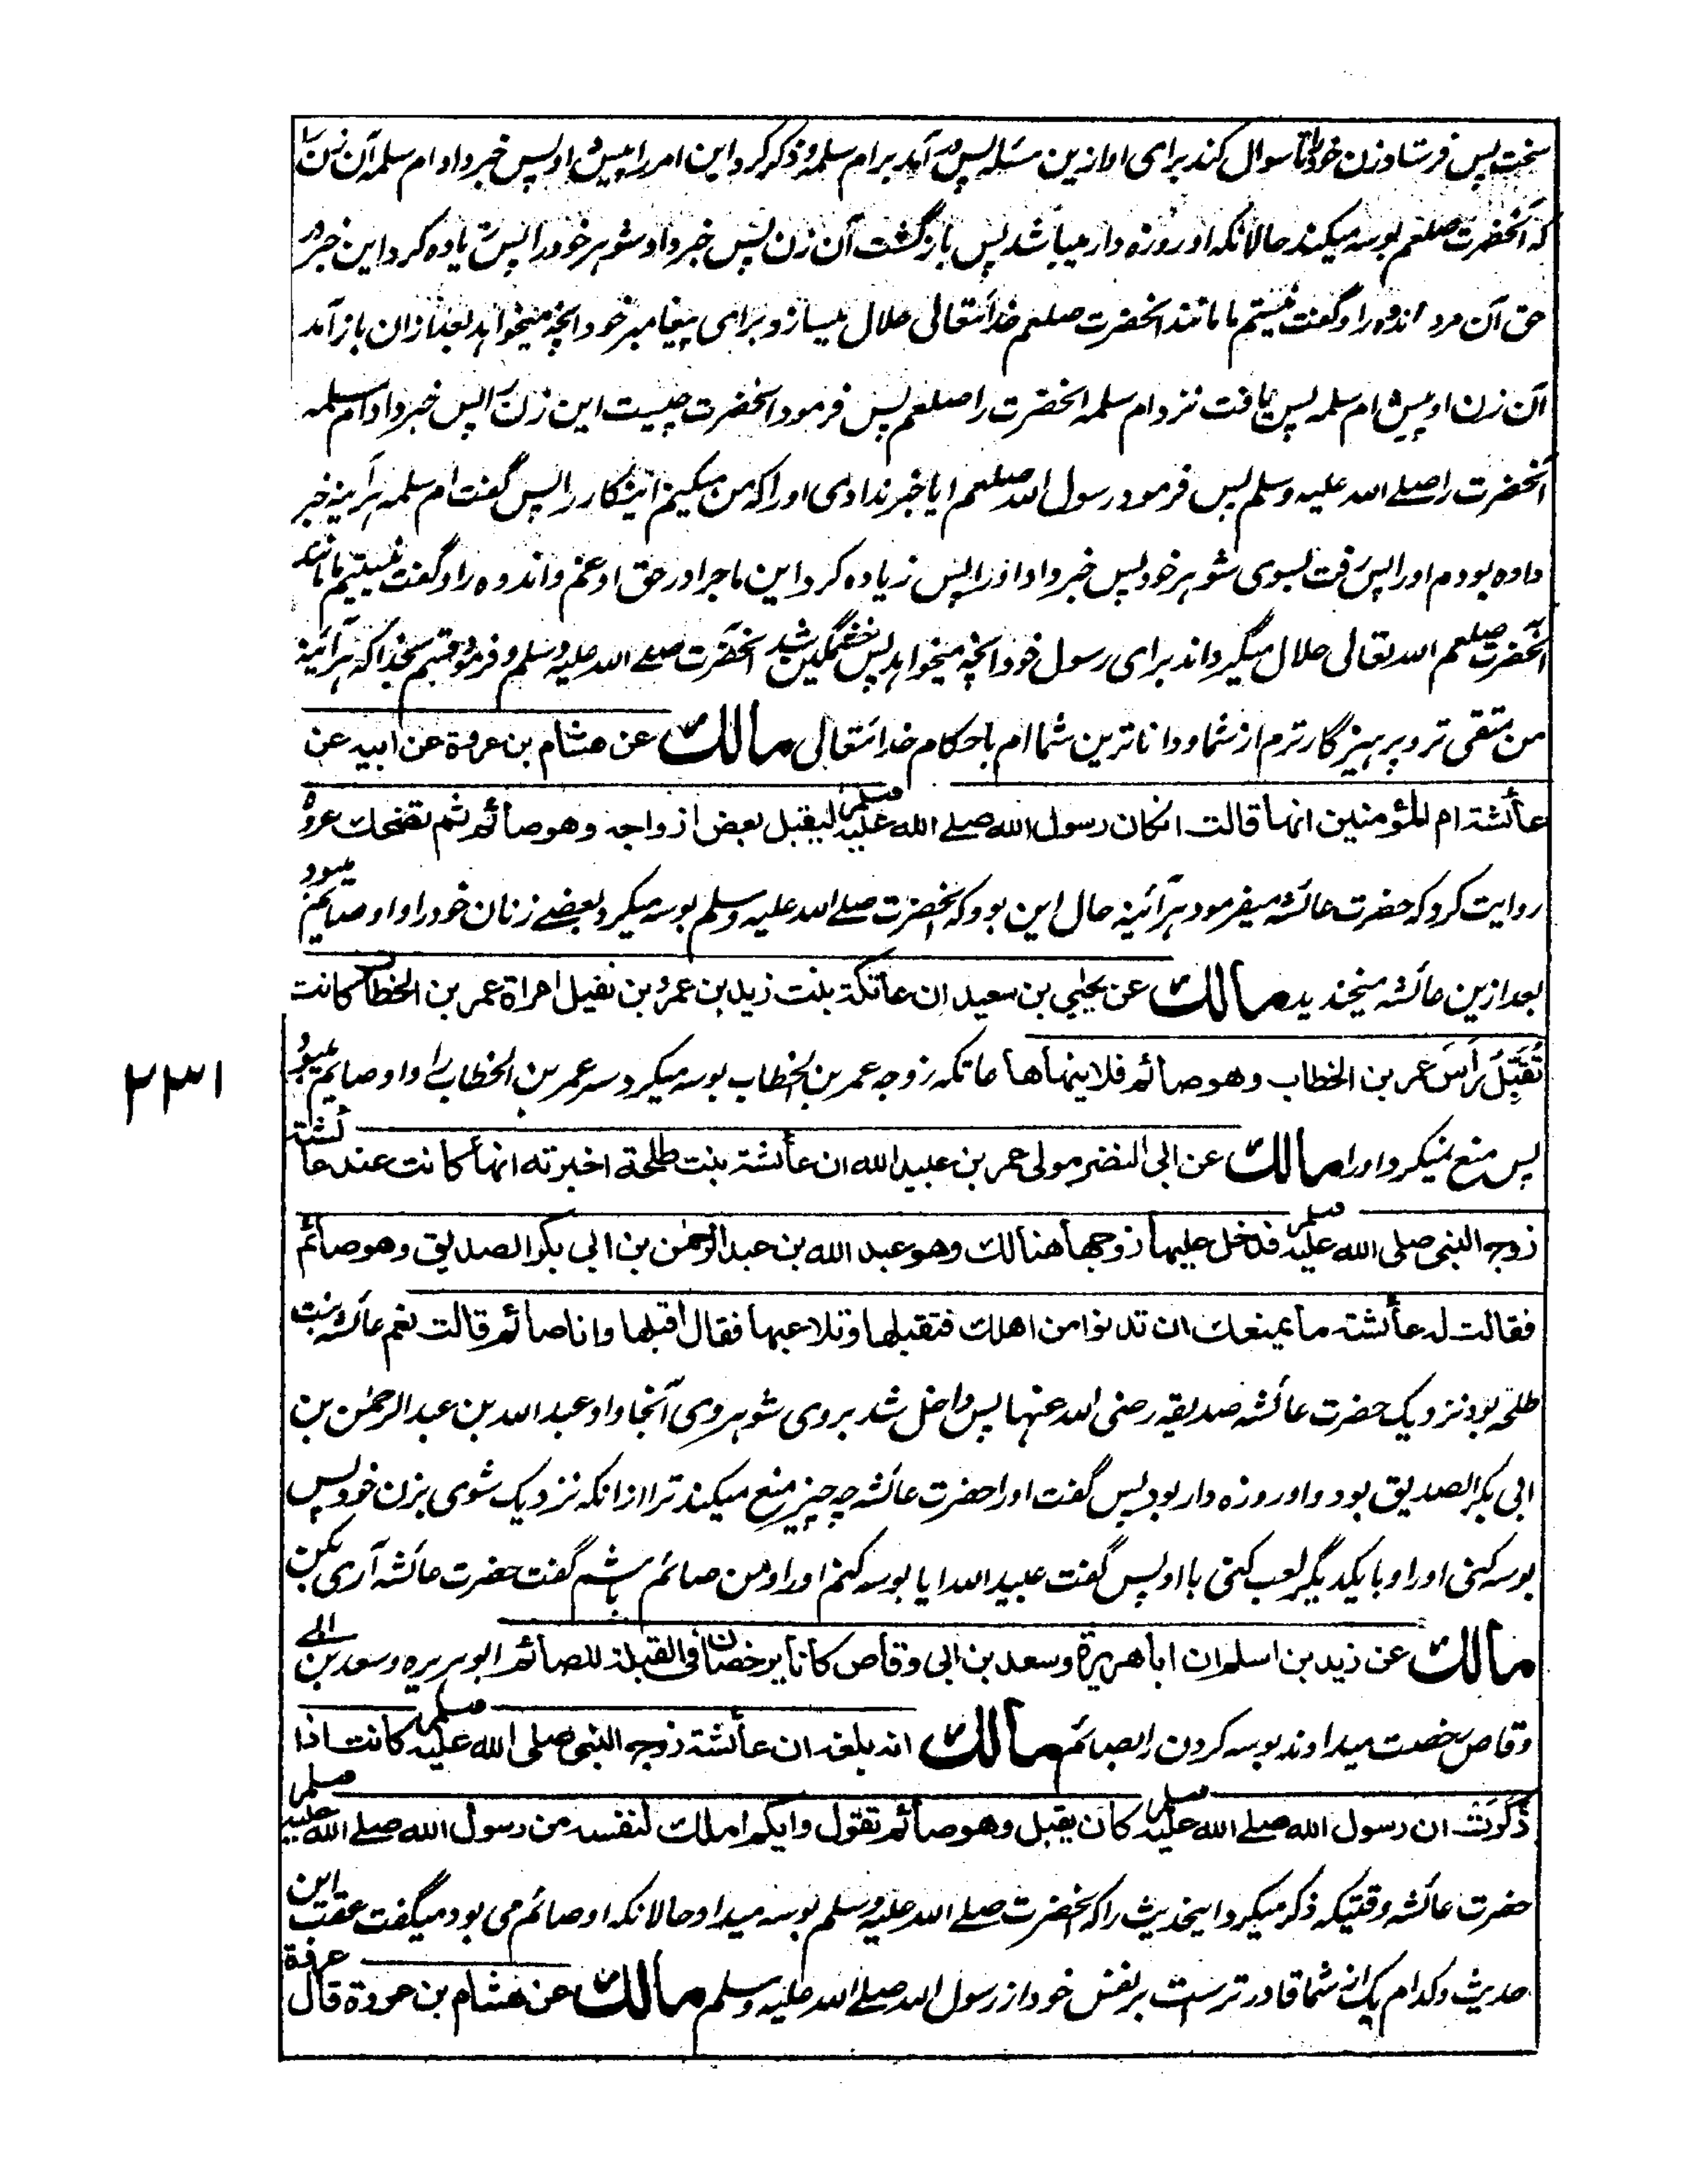 سخت پس فرستاد زن خود را تا سوال کند برای او ازین مسئله پس در آمد بر ام سلمه و ذکر کرد این امر را پیش او پس خبر داد ام سلمه آن زن را
که آنحضرت صلعم بوسه میکند حالانکه او روزه دار میباشد پس باز گشت آن زن پس خبر داد شوهر خود را پس زیاده کرد این خبر در
حق آن مرد اندوه را و گفت نیستم ما مانند آنحضرت صلعم خدایتعالی حلال میسازد برای پیغامبر خود آنچه میخواهد بعد ازان باز آمد
آن زن او پیش ام سلمه پس یافت نزد ام سلمه آنحضرت را صلعم پس فرمود آنحضرت چیست این زن را پس خبر داد ام سلمه
آنحضرت را صلے الله علیه وسلم پس فرمود رسول الله صلعم ایا خبر ندادی او را که من میکنم اینکار را پس گفت ام سلمه هرآینه خبر
داده بودم او را پس رفت بسوی شوهر خود پس خبر داد او را پس زیاده کرد این ماجرا در حق او غم و اندوه را و گفت نیستیم ما مانند
آنحضرت صلعم الله تعالی حلال میگرداند برای رسول خود آنچه میخواهد پس خشمگین شد آنحضرت صلے الله علیه وسلم و فرمود قسم بخدا که هرآئینه
من متقی تر و پرهیزگارترم از شما و داناترین شما ام باحکام خدایتعالی مالك عن هشام بن عروة عن ابیه عن
عائشة ام المؤمنین انها قالت ان کان رسول الله صلے الله علیه وسلم لیقبل بعض ازواجه وهو صائم ثم تضحك عروه
روایت کرد که حضرت عائشه میفرمود هرآئینه حال این بود که آنحضرت صلے الله علیه وسلم بوسه میکرد بعضے زنان خود را و او صایم میبود
بعد ازین عائشه میخندید مالك عن یحیی بن سعید ان عاتکة بنت زید بن عمرو بن نفیل امراة عمر بن الخطاب کانت
تُقَبِّلُ رَأسَ عمر بن الخطاب وهو صائم فلا ینهاها عاتکه زوجه عمر بن الخطاب بوسه میکرد سر عمر بن الخطاب را و او صایم میبود
۲۳۱
پس منع نمیکرد او را مالك عن ابی النضر مولی عمر بن عبید الله ان عائشة بنت طلحة اخبرته انها کانت عند عائشة
زوج النبی صلی الله علیه وسلم فدخل علیها زوجها هنالك وهو عبد الله بن عبد الرحمن بن ابی بکر الصدیق وهو صائم
فقالت له عائشة ما یمنعك ان تدنوا من اهلك فتقبلها وتلاعبها فقال اقبلها وانا صائم قالت نعم عائشه بنت
طلحه بود نزدیک حضرت عائشه صدیقه رضی الله عنها پس داخل شد بروی شوهر وی آنجا و او عبد الله بن عبد الرحمن بن
ابی بکر الصدیق بود و او روزه دار بود پس گفت او را حضرت عائشه چه چیز منع میکند ترا ازانکه نزدیک شوی بزن خود پس
بوسه کنی او را و با یکدیگر لعب کنی با او پس گفت عبید الله ایا بوسه کنم او را و من صائم باشم گفت حضرت عائشه آری بکن
مالك عن زید بن اسلم ان ابا هریرة وسعد بن ابی وقاص کانا یرخصان فی القبلة للصائم ابو هریره و سعد بن ابی
وقاص رخصت میدادند بوسه کردن را بصائم مالك انه بلغه ان عائشة زوج النبی صلی الله علیه وسلم کانت اذا
ذَکَرَتْ ان رسول الله صلے الله علیه وسلم کان یقبل وهو صائم تقول وایکم املك لنفسه من رسول الله صلے الله علیه وسلم
حضرت عائشه وقتیکه ذکر میکرد اینحدیث را که آنحضرت صلے الله علیه وسلم بوسه میداد حالانکه او صائم می بود میگفت عقب این
حدیث و کدام یک از شما قادر ترست بر نفس خود از رسول الله صلے الله علیه وسلم مالك عن هشام بن عروة قال عروة